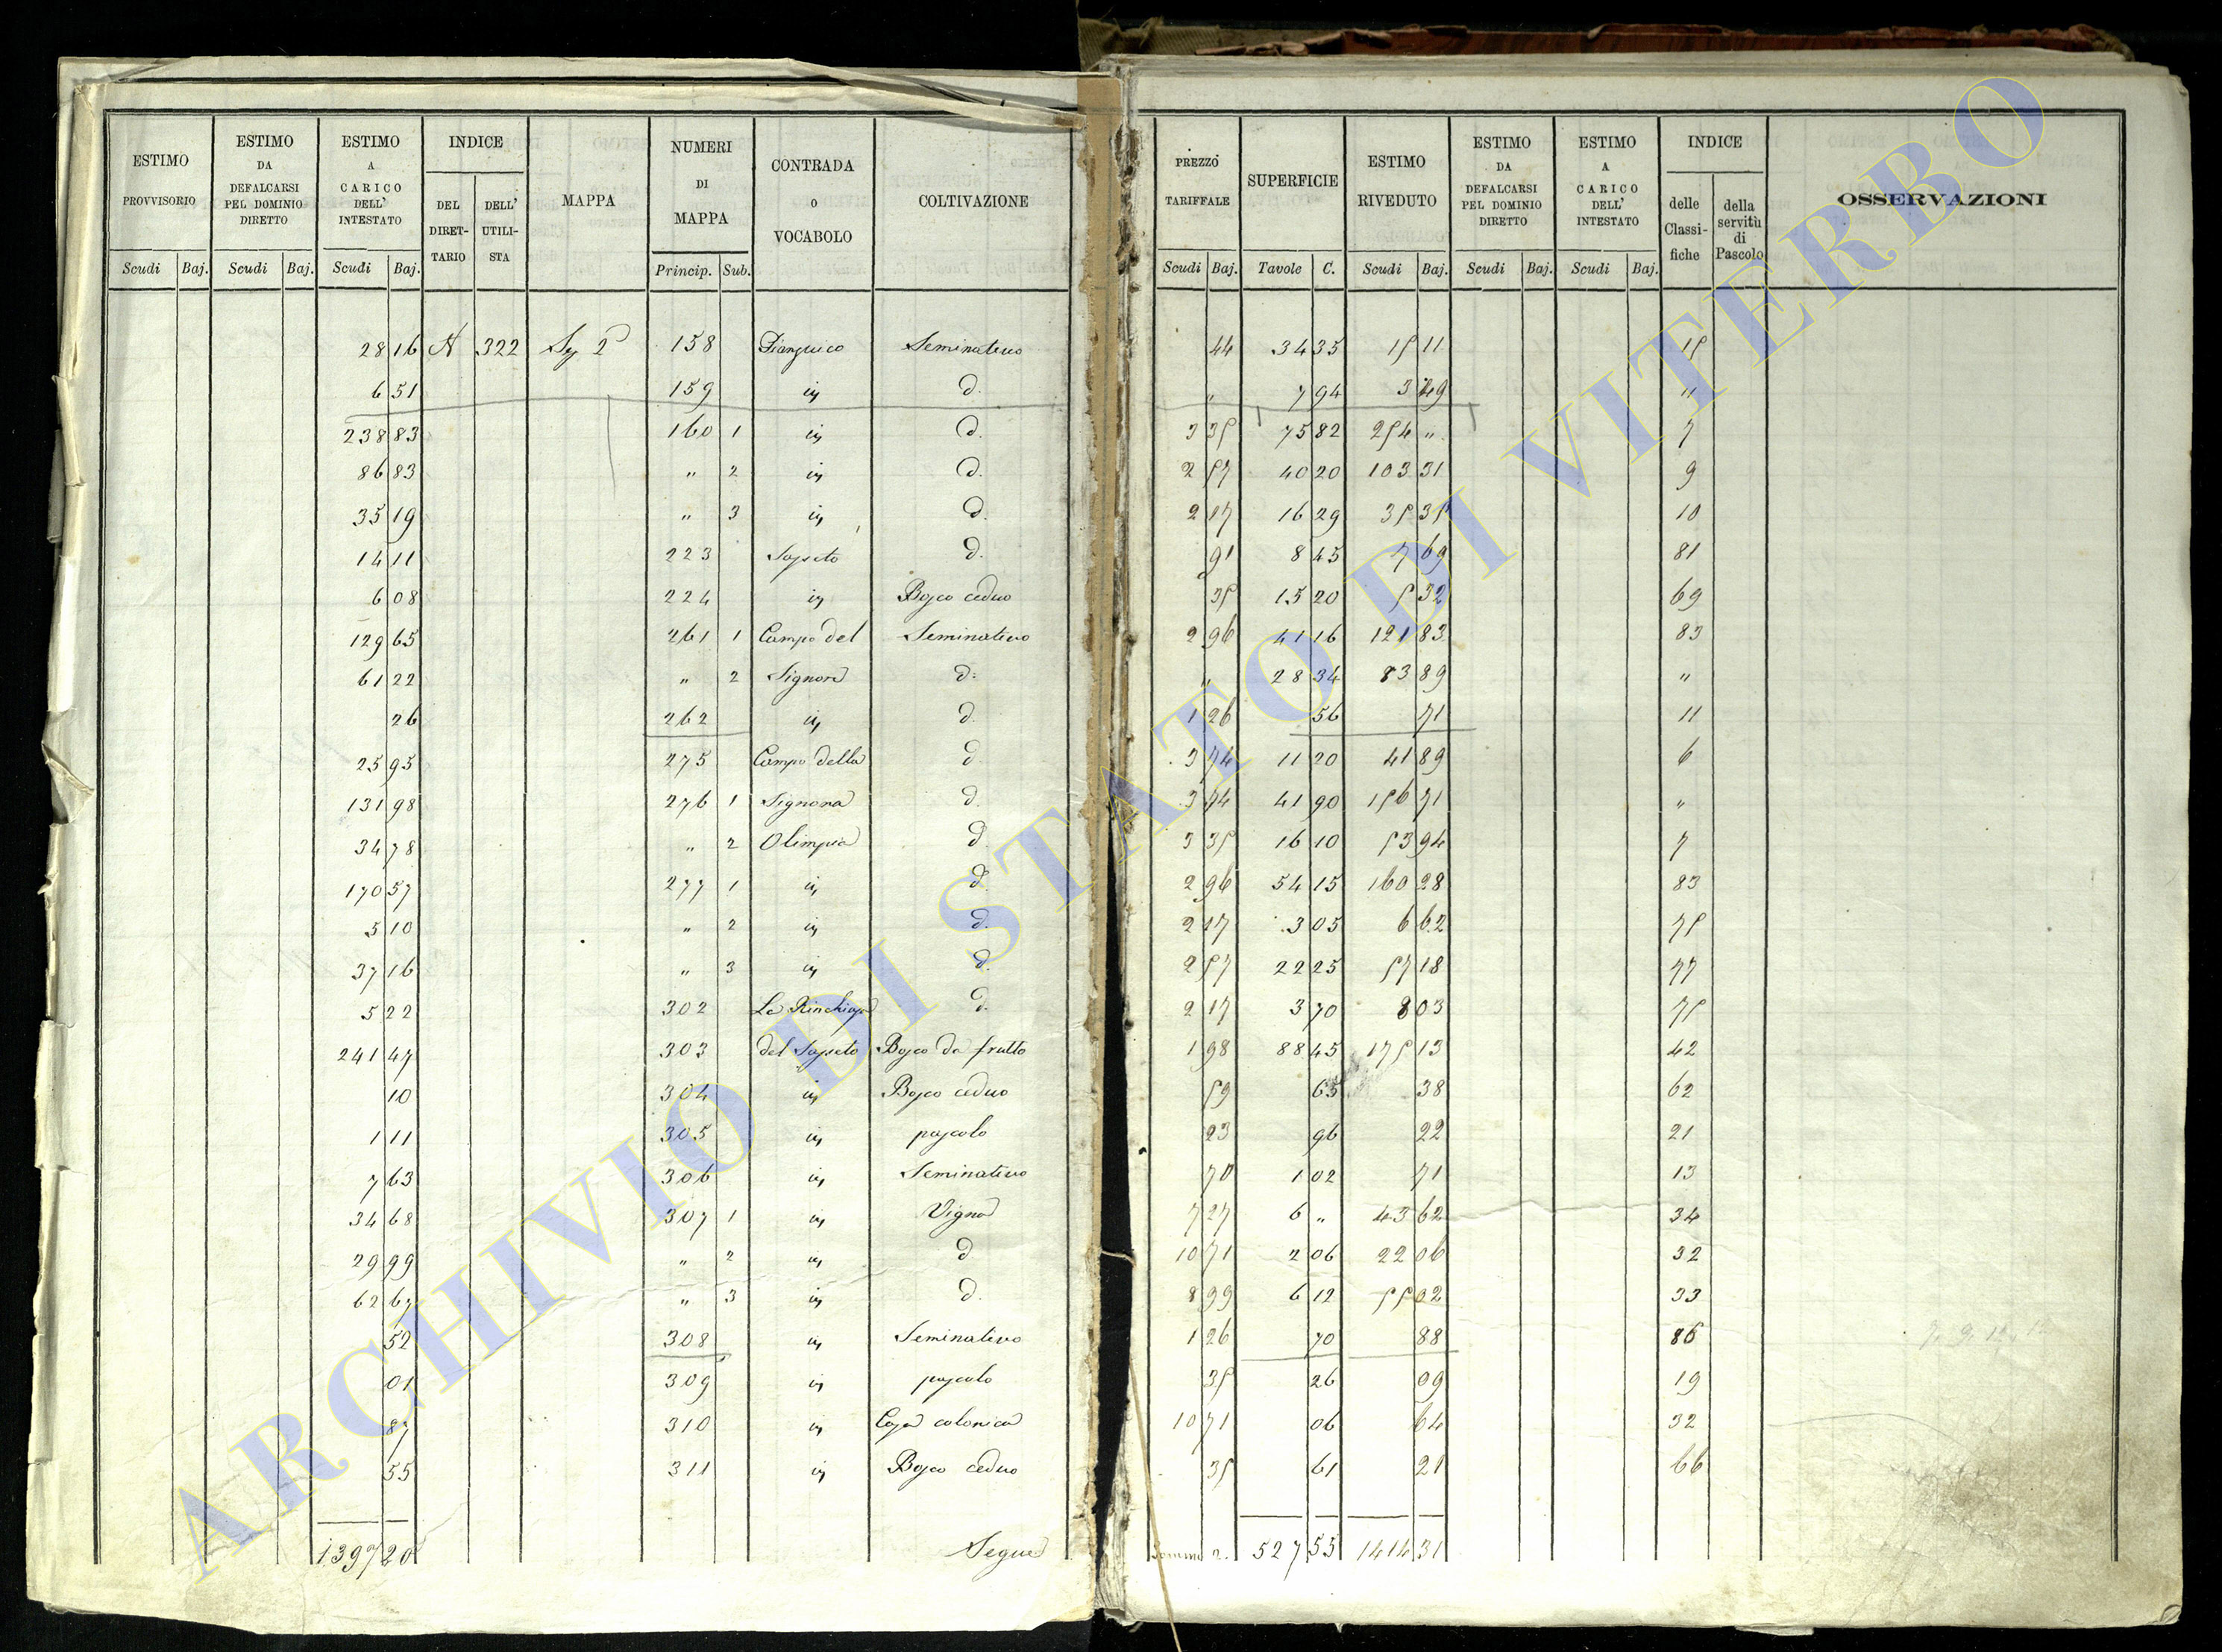 ESTIMO PROVVISORIO | ESTIMO DA DEFALCARSI PEL DOMINIO DIRETTO | ESTIMO A CARICO DELL' INTESTATO | INDICE DEL DIRET- TARIO | DELL' UTILI- STA | MAPPA | NUMERI DI MAPPA | CONTRADA O VOCABOLO | COLTIVAZIONE | PREZZO TARIFFALE | SUPERFICIE | ESTIMO RIVEDUTO | ESTIMO DA DEFALCARSI PEL DOMINIO DIRETTO | ESTIMO A CARICO DELL' INTESTATO | INDICE delle Classi- fiche | della servitù di Pascolo | OSSERVAZIONI
Scudi | Baj. | Scudi | Baj. | Scudi | Baj. | Princip. | Sub. | Scudi | Baj. | Tavole | C. | Scudi | Baj. | Scudi | Baj. | Scudi | Baj.
28 16 322 158 Seminativo 44 34 35 15 11 15
6 51 159 in d. " 7 94 3 49 "
238 83 160 1 in d. 3 35 75 82 254 " 7
86 83 " 2 in d. 2 57 40 20 103 31 9
35 19 " 3 in d. 2 17 16 29 35 35 10
14 11 223 Sapeto d. 91 8 45 7 69 81
6 08 224 in Bosco ceduo 35 15 20 5 32 69
129 65 261 1 Campo del Seminativo 2 96 41 16 121 83 83
61 22 " 2 Signore d. " 28 34 83 89 "
26 262 in d. 1 26 56 71 11
25 95 275 Campo della d. 3 74 11 20 41 89 6
131 98 276 1 Signora d. 3 74 41 90 156 71 "
34 78 " 2 Olimpia d. 3 35 16 10 53 94 7
170 57 277 1 in d. 2 96 54 15 160 28 83
5 10 " 2 in d. 2 17 3 05 6 62 75
37 16 " 3 in d. 2 57 22 25 57 18 77
5 22 302 La d. 2 17 3 70 8 03 75
241 47 303 del Sapeto Bosco da frutto 1 98 88 45 175 13 42
10 304 in Bosco ceduo 59 65 38 62
1 11 305 in pascolo 23 96 22 21
7 63 306 in Seminativo 70 1 02 71 13
34 68 307 1 in Vigna 7 27 6 " 43 62 34
29 99 " 2 in d 10 71 2 06 22 06 32
62 67 " 3 in d. 8 99 6 12 55 02 33
52 308 in Seminativo 1 26 70 88 86
01 309 in pascolo 35 26 09 19
87 310 in Casa colonica 10 71 06 64 32
55 311 in Bosco ceduo 35 61 21 66
1397 20 Segue 527 55 1414 31
ARCHIVIO DI STATO DI VITERBO